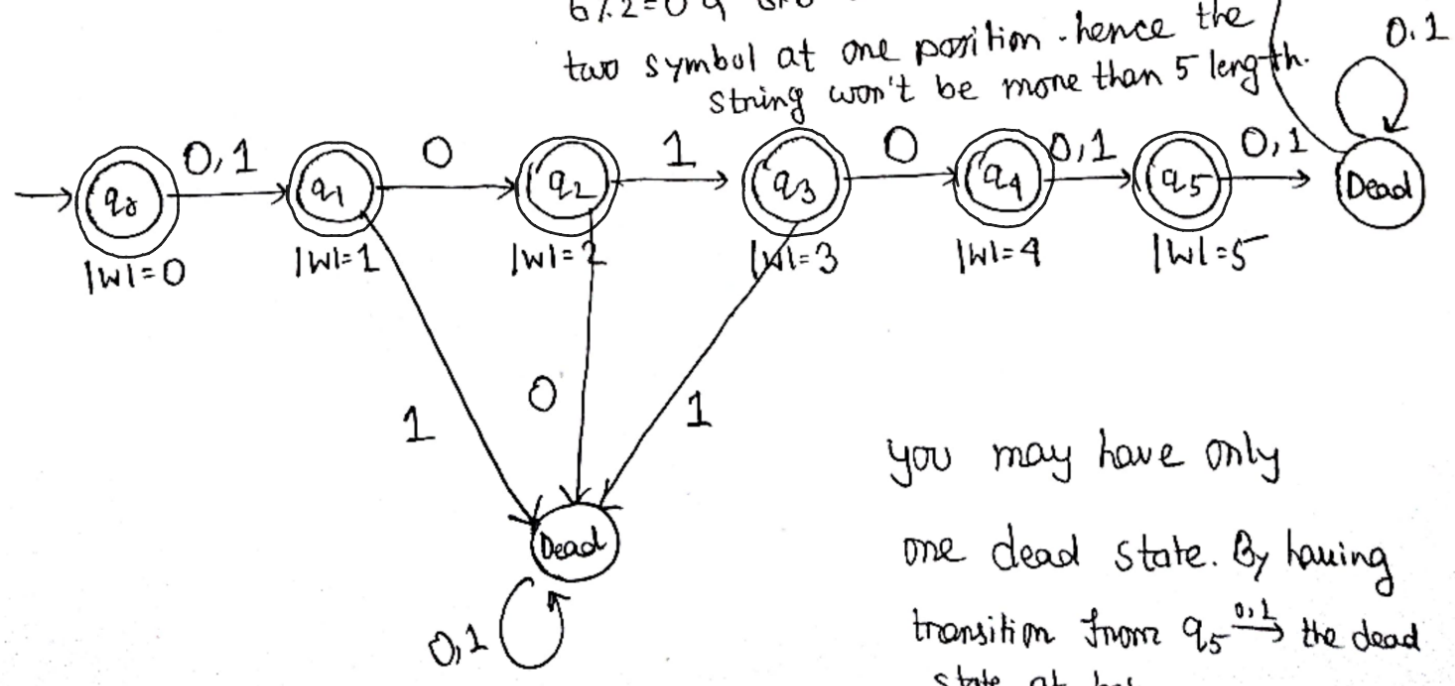 6%2=0
two symbol at one position. hence the
string won't be more than 5 length.
0.1
0,1 0 1 0 0,1 0,1
q0 q1 q2 q3 q4 q5 Dead
|w|=0 |w|=1 |w|=2 |w|=3 |w|=4 |w|=5
1 0 1
you may have only
Dead
one dead state. By having
0,1
transition from q5 0,1→ the dead
state at